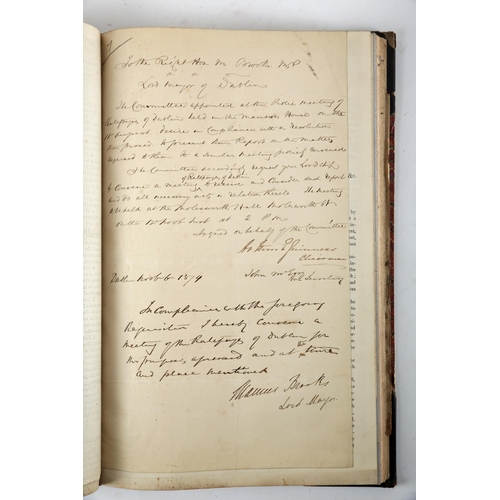 To the Right Hon M Brooks M.P
Lord Mayor of Dublin
The Committee appointed at the Public meeting of
Ratepayers of Dublin held in the Mansion House on the
August desire in Compliance with a resolution
then passed to present their Report on the matters
referred to them to a similar meeting
The Committee accordingly request your Lordship
of Ratepayers of Dublin
to Convene a meeting to receive and Consider said Report
and do all necessary acts in relation thereto The meeting
to be held at the Molesworth Hall Molesworth St
on the 12 Novb at 2 P.m
Signed on behalf of the Committee
Guinness
Chairman
Dublin Novb 6 1879
John
Secretary
In Compliance with the foregoing
Requisition I hereby Convene a
meeting of the Ratepayers of Dublin for
the purposes expressed and at the time
and place mentioned
Maurice Brooks
Lord Mayor